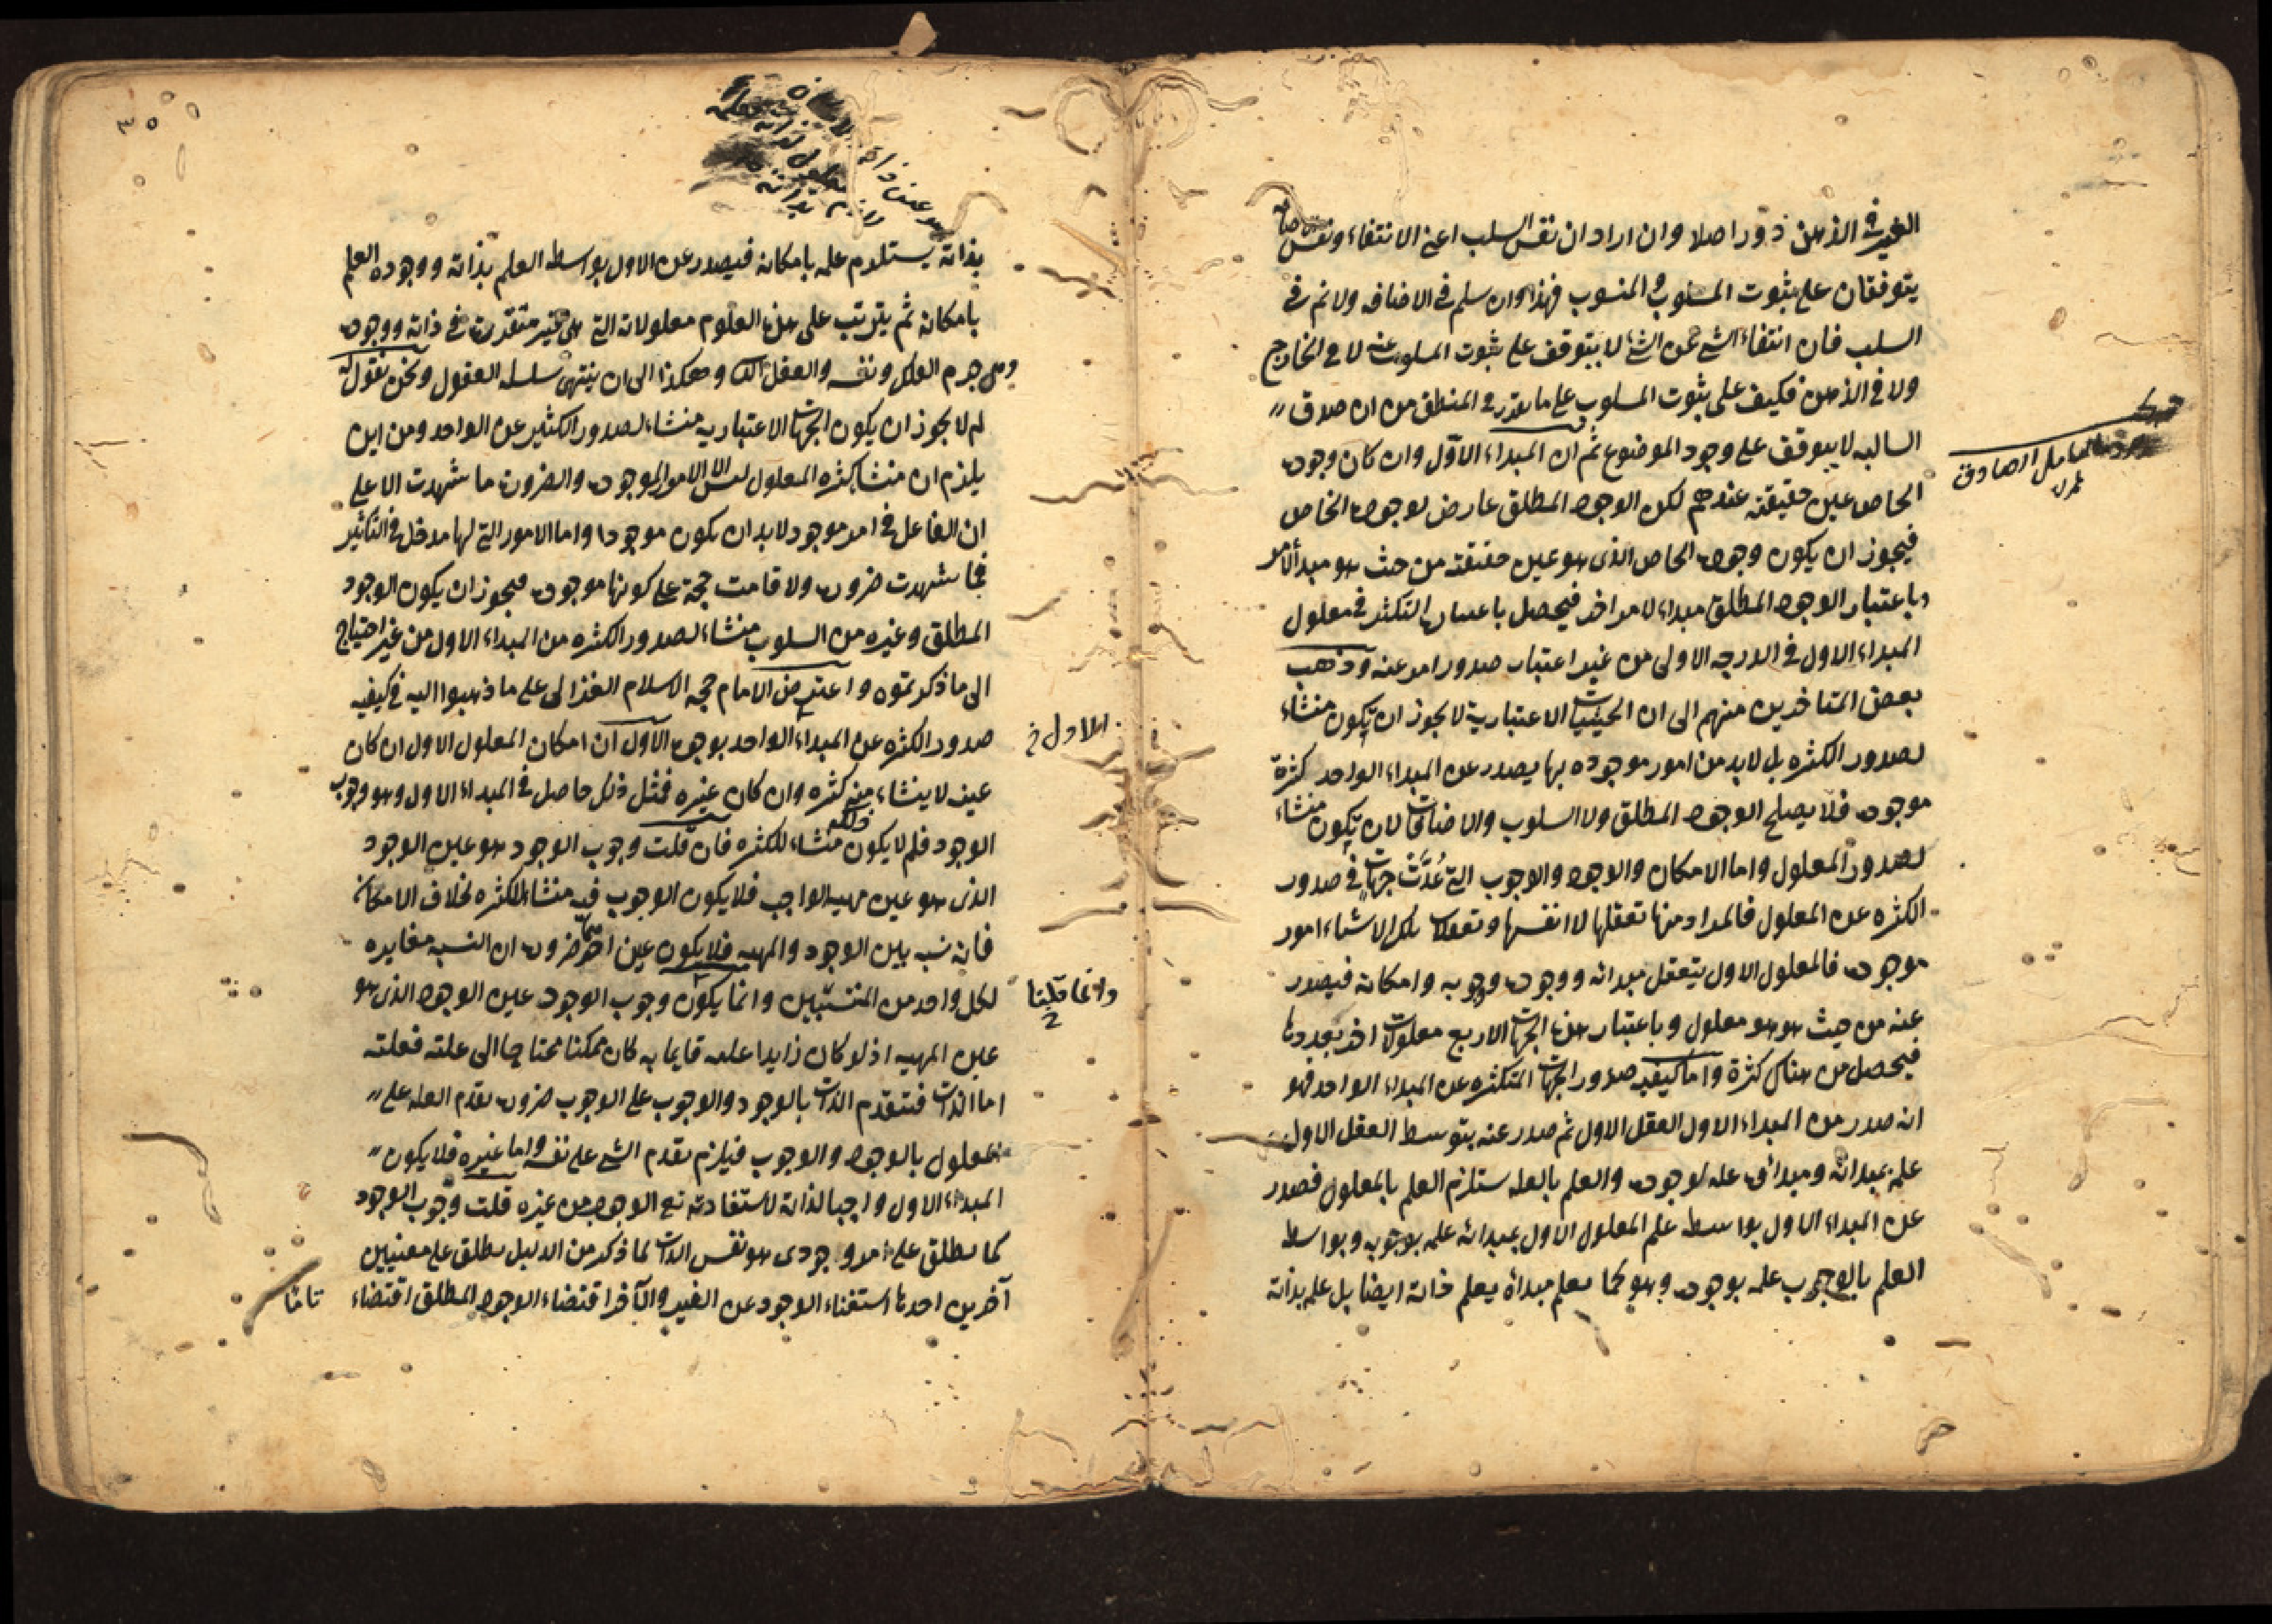 الغير في الذهن دورا اصلا وان اراد ان نفس السلب اعني الانتفاء ونفس
يتوقفان على ثبوت المسلوب والمنسوب فهذا وان سلم في الاضافه ولا نم في
السلب فان انتفاء الشئ عن الشئ لا يتوقف على ثبوت المسلوب عنه لا في الخارج
ولا في الذهن فكيف على ثبوت المسلوب على ما تقرر في المنطق من ان صدق
السالبه لا يتوقف على وجود الموضوع ثم ان المبداء الاول وان كان وجوده
الخاص عين حقيقته عندهم لكن الوجود المطلق عارض لوجوده الخاص
فيجوز ان يكون وجوده الخاص الذى هو عين حقيقته من حيث هو مبدأ لأمر
وباعتبار الوجود المطلق مبداء لامر اخر فيحصل باعتباره التكثر في معلول
المبداء الاول في الدرجه الاولى من غير اعتبار صدور امر عنه وذهب
بعض المتاخرين منهم الى ان الحيثيات الاعتبارية لا يجوز ان يكون منشاء
لصدور الكثره بل لا بد من امور موجوده بها يصدر عن المبداء الواحد كثرة
موجوده فلا يصلح الوجود المطلق ولا السلوب والاضافات لان يكون منشاء
لصدور المعلول واما الامكان والوجود والوجوب التي عُدَّت جهات في صدور
الكثره عن المعلول فالمراد منها تعقلها لا انفسها وتعقلات تلك الاشياء امور
موجوده فالمعلول الاول يتعقل مبدائه ووجوده ووجوبه وامكانه فيصدر
عنه من حيث هو هو معلول وباعتبار هذه الجهات الاربع معلولات اخر بعددها
فيحصل من هناك كثرة واما كيفيه صدور الجهات المتكثره عن المبداء الواحد فهو
انه صدر من المبداء الاول العقل الاول ثم صدر عنه بتوسط العقل الاول
علمه بمبدائه ومبدائه علة لوجوده والعلم بالعله ستلزم العلم بالمعلول فصدر
عن المبداء الاول بواسطه علم المعلول الاول بمبدائه علمه بوجوبه وبواسطه
العلم بالوجوب علمه بوجوده وهو كما يعلم مبدأه يعلم ذاته ايضا بل علمه بذاته
بذاته يستلزم علمه بامكانه فيصدر عن الاول بواسطه العلم بذاته ووجوده العلم
بامكانه ثم يترتب على هذه العلوم معلولاته التي هى غير متقدمة في ذاته ووجوده
وهى جرم الفلك ونفسه والعقل الثانى وهكذا الى ان ينتهى سلسله العقول ونحن نقول
لم لا يجوز ان يكون الجهات الاعتباريه منشاء لصدور الكثير عن الواحد ومن اين
يلزم ان منشا كثره المعلول ليس الا الامور الموجوده والضرورة ما شهدت الا على
ان الفاعل في امر موجود لا بد ان يكون موجودا واما الامور التي لها مدخل في التاثير
فما شهدت ضرورة ولا قامت حجة على كونها موجوده فيجوز ان يكون الوجود
المطلق وغيره من السلوب منشاء لصدور الكثره من المبداء الاول من غير احتياج
الى ما ذكرتموه واعترض الامام حجه الاسلام الغزالى على ما ذهبوا اليه في كيفيه
صدور الكثره عن المبداء الواحد بوجوه الاول ان امكان المعلول الاول ان كان
عينه لا ينشاء منه كثره وان كان غيره فمثل ذلك حاصل في المبداء الاول وهو وجوب
الوجود فلم لا يكون منشاء للكثره فان قلت وجوب الوجود هو عين الوجود
الذى هو عين مهيه الواجب فلا يكون الوجوب فيه منشاء للكثره بخلاف الامكان
فانه نسبه بين الوجود والمهيه فلا يكون عين احدهما ضروره ان النسبه مغايره
لكل واحد من المنتسبين وانما يكون وجوب الوجود عين الوجود الذى هو
عين المهيه اذ لو كان زايدا عليه قايما به كان ممكنا محتاجا الى علته فعلته
اما الذات فتتقدم الذات بالوجود والوجوب على الوجوب ضروره تقدم العله على
المعلول بالوجود والوجوب فيلزم تقدم الشئ على نفسه واما غيره فلا يكون
المبداء الاول واجبا لذاته لاستفادته الوجود من غيره قلت وجوب الوجود
كما يطلق على امر وجودى هو نفس الذات لما ذكر من الدليل يطلق على معنيين
آخرين احدها استغناء الوجود عن الغير والآخر اقتضاء الوجود المطلق اقتضاء
تاما
الاول
وانما قلنا